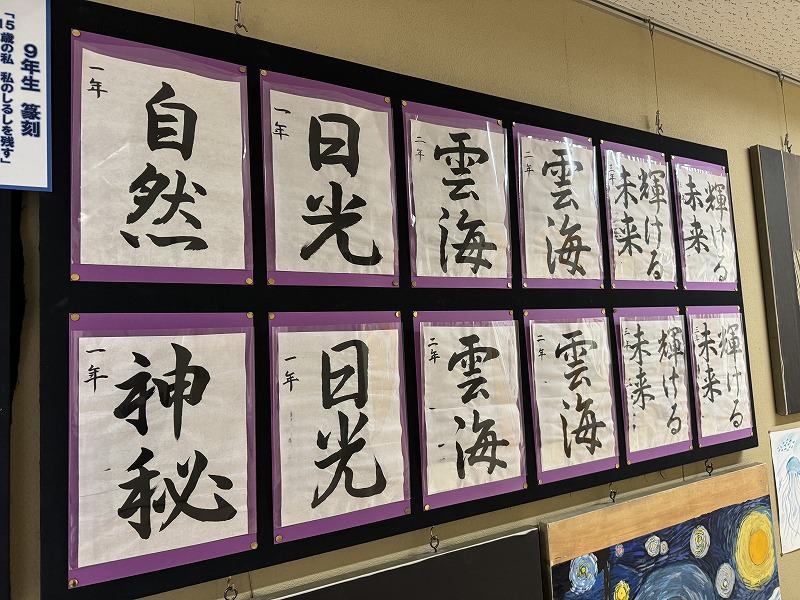 9年生 篆刻
「15歳の私 私のしるしを残す」
一年
自然
一年
日光
二年
雲海
二年
雲海
三年
輝ける
未来
輝ける
未来
一年
神秘
一年
日光
二年
雲海
二年
雲海
三年
輝ける
未来
三年
輝ける
未来